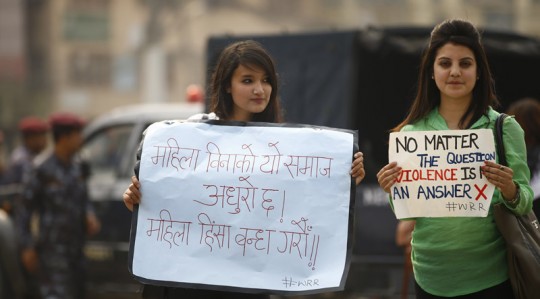 महिला विनाको यो समाज
अधुरो छ!
महिला हिंसा बन्ध गरौं!!
#WRR
NO MATTER
THE QUESTION
VIOLENCE IS N
AN ANSWER X
#WRR